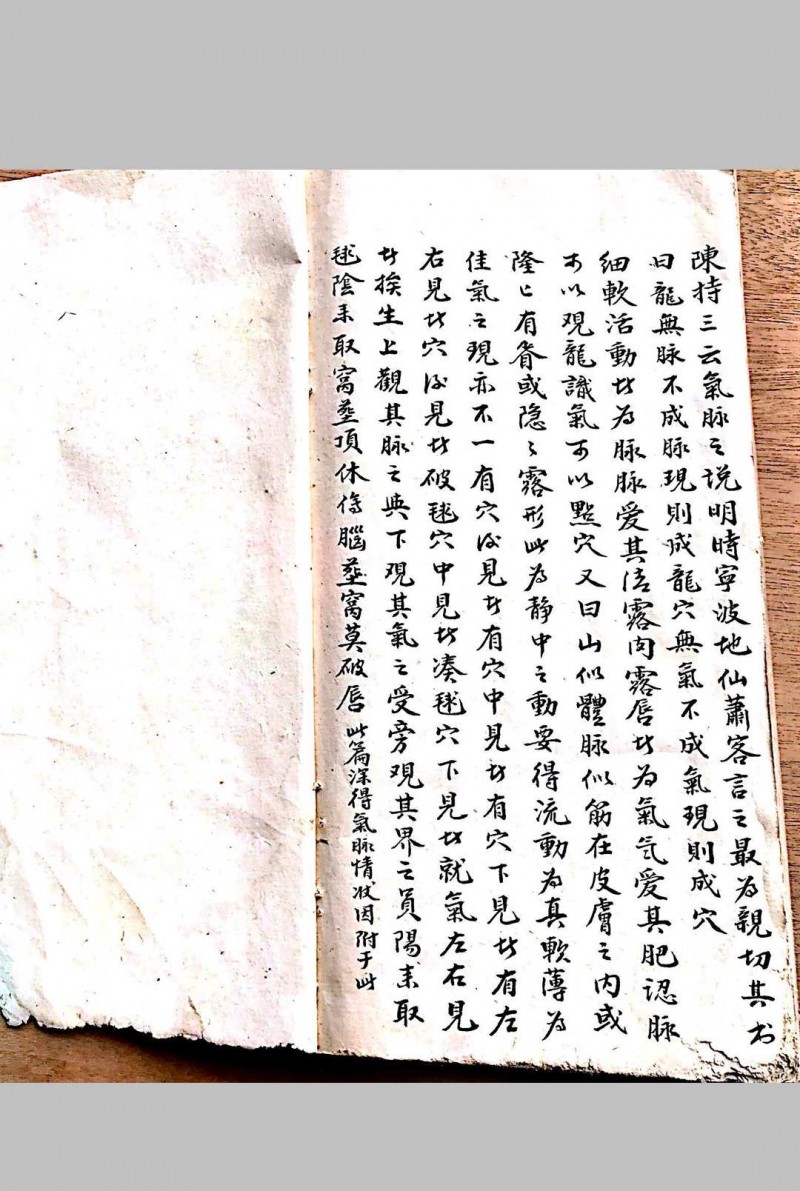 陳持三云氣脉之說明時寧波地仙蕭客言之最為親切其書
曰龍無脉不成脉現則成龍穴無氣不成氣現則成穴
細軟活動者為脉脉愛其活露肉露唇者為氣气愛其肥認脉
可以观龍識氣可以點穴又曰山似體脉似筋在皮膚之内或
隆隆有脊或隐隐露形此為静中之動要得流動為真軟薄為
佳氣之現亦不一有穴後見者有穴中見者有穴下見者有左
右見者穴後見者破毬穴中見者湊毬穴下見者就氣左右見
者挨生上觀其脉之與下观其氣之受旁观其界之員陽来取
毬陰来取窩塟頂休傷腦塟窩莫破唇 此篇深得氣脉情狀因附于此